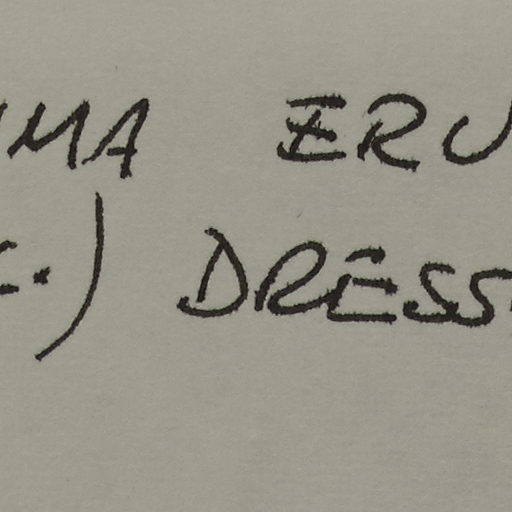 MA ERU
.) DRESS